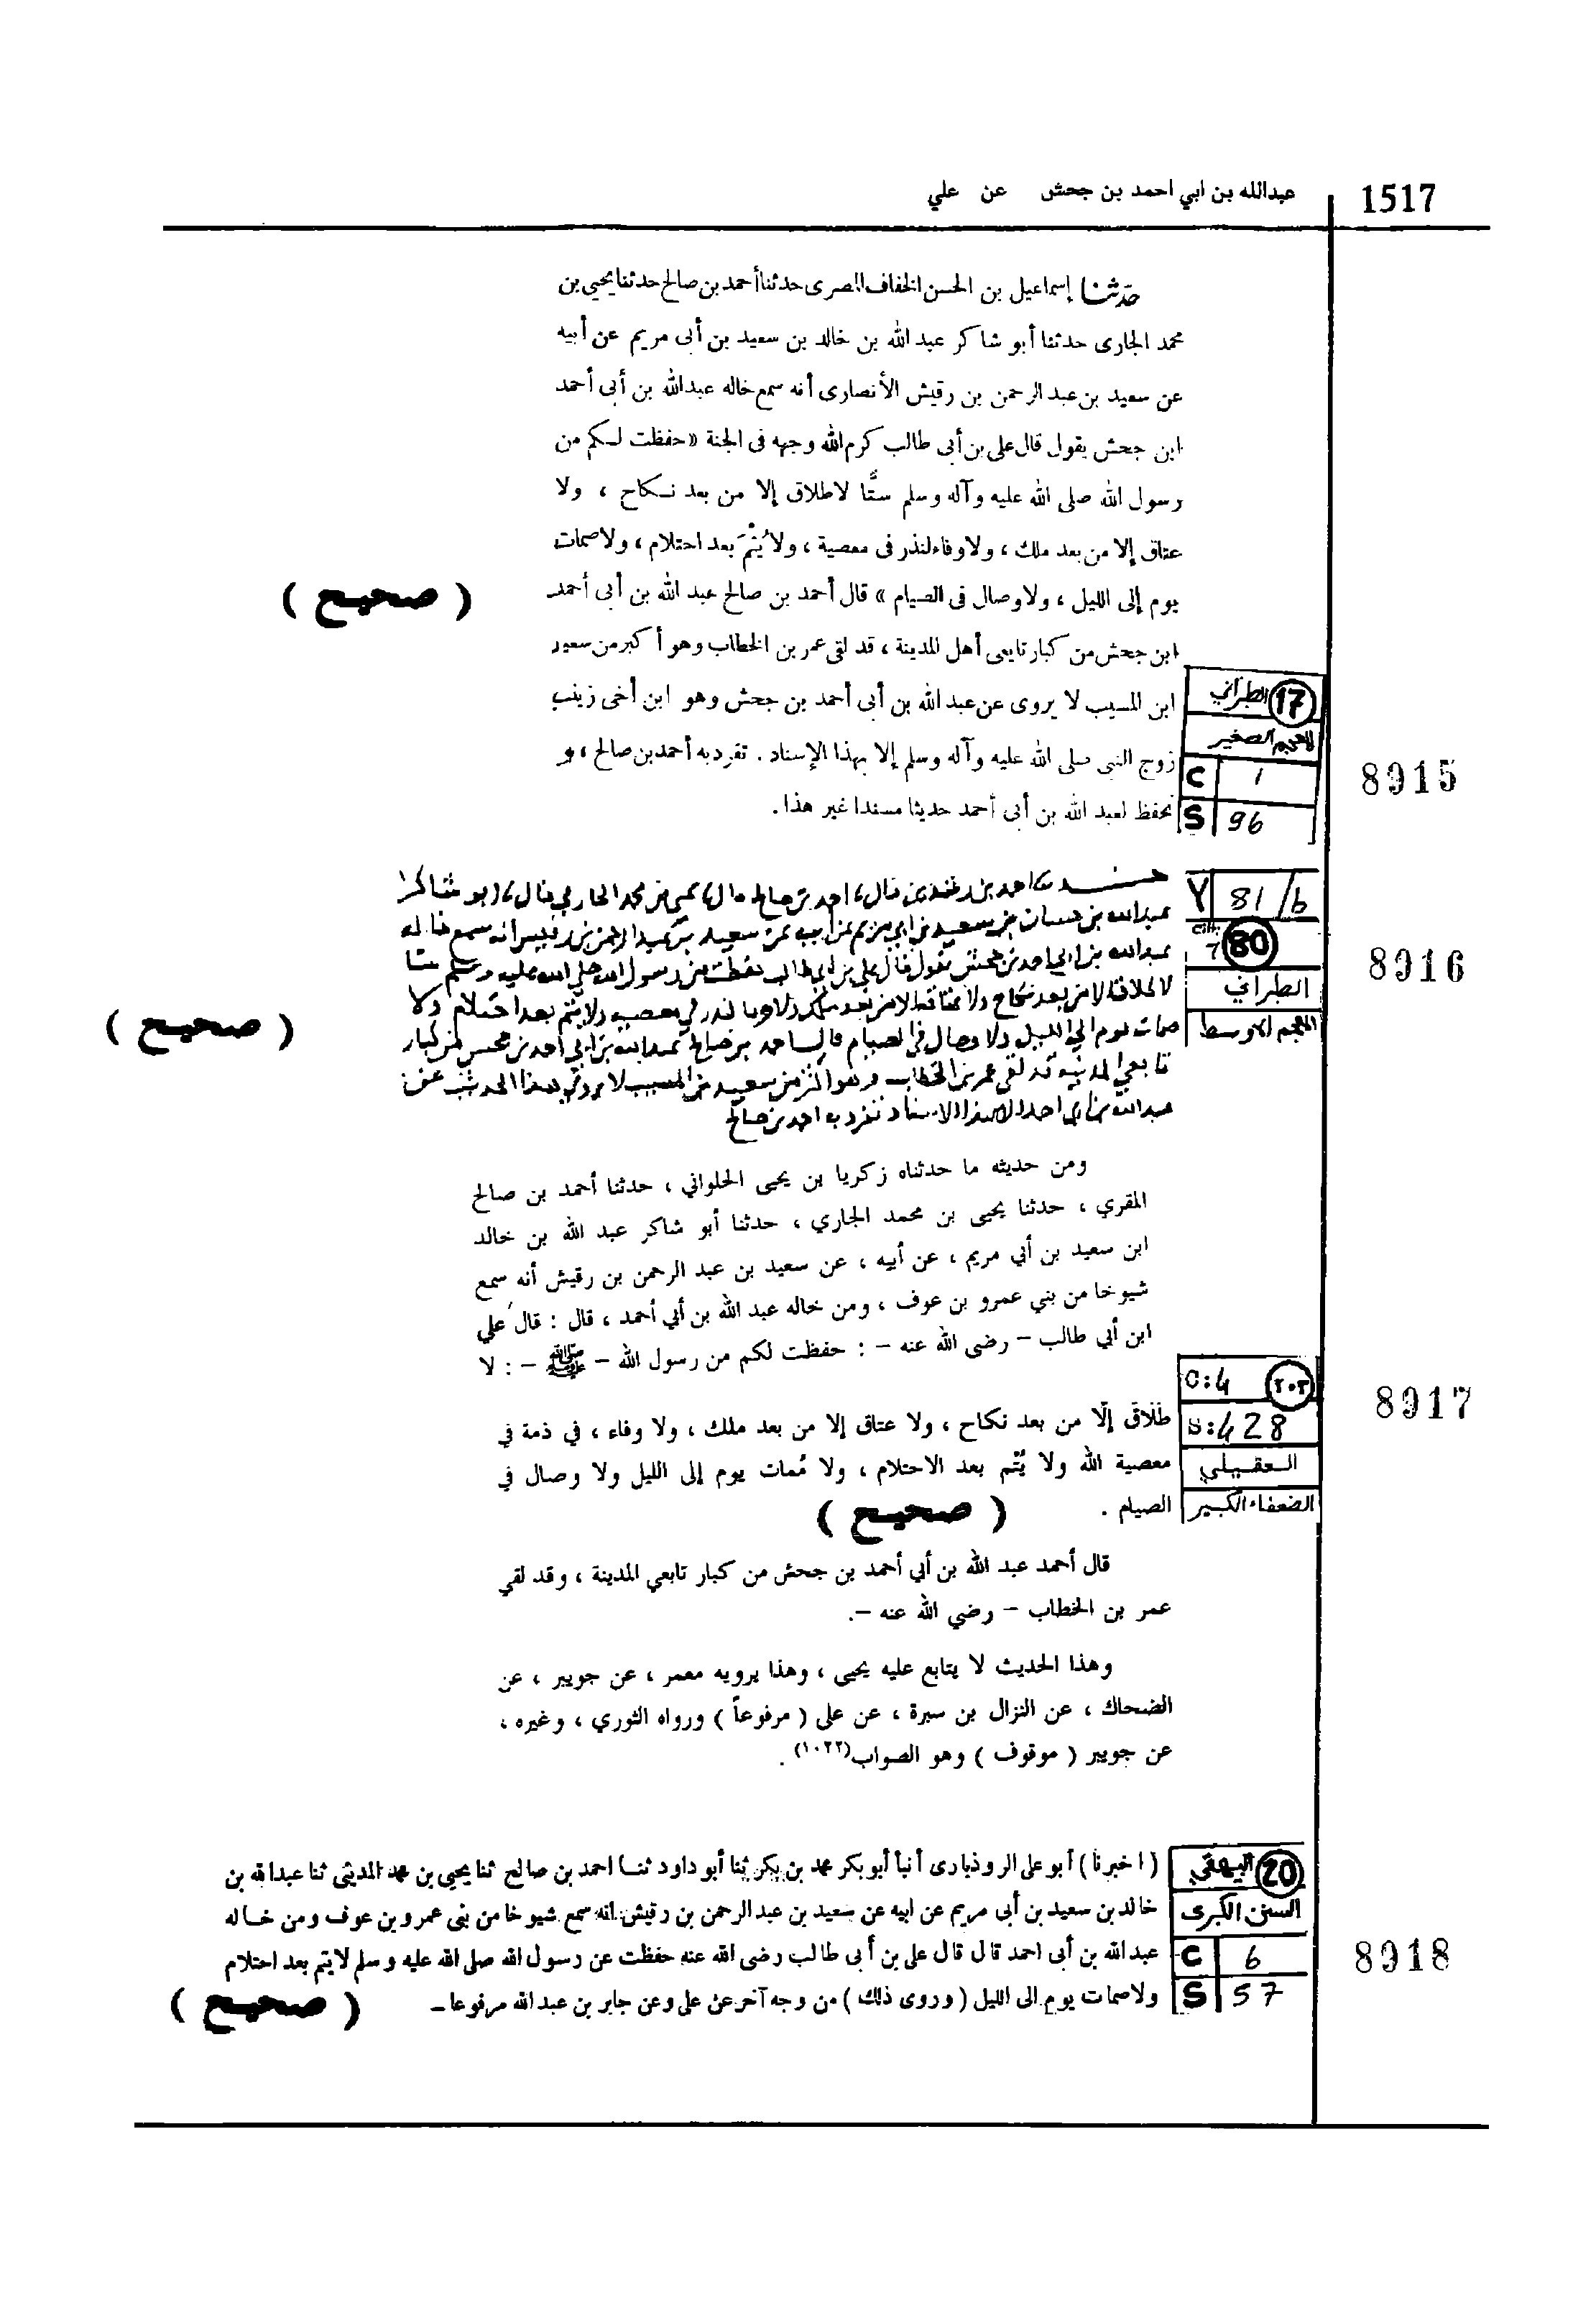 1517
عبدالله بن ابي احمد بن جحش عن علي
حدثنا إسماعيل بن الحسن الخفاف المصرى حدثنا أحمد بن صالح حدثنا يحيى بن
محمد الجارى حدثنا أبو شاكر عبد الله بن خالد بن سعيد بن أبى مريم عن أبيه
عن سعيد بن عبد الرحمن بن رقيش الأنصارى أنه سمع خاله عبدالله بن أبى أحمد
ابن جحش يقول قال على بن أبى طالب كرم الله وجهه فى الجنة «حفظت لكم من
رسول الله صلى الله عليه وآله وسلم ستًّا لاطلاق إلا من بعد نكاح ، ولا
عتاق إلا من بعد ملك ، ولاوفاء لنذر فى معصية ، ولا يُتْمَ بعد احتلام ، ولاصمات
يوم إلى الليل ، ولاوصال فى الصيام » قال أحمد بن صالح عبد الله بن أبى أحمد
( صحيح )
ابن جحش من كبار تابعى أهل المدينة ، قد لقى عمر بن الخطاب وهو أكبر من سعيد
ابن المسيب لا يروى عن عبد الله بن أبى أحمد بن جحش وهو ابن أخى زينب
زوج النبى صلى الله عليه وآله وسلم إلا بهذا الإسناد . تفرد به أحمد بن صالح ،
نحفظ لعبد الله بن أبى أحمد حديثا مسندا غير هذا .
17 الطبراني
المعجم الصغير
C 1
S 96
8915
Y 81/b
cilt: 7 80
الطبراني
المعجم الاوسط
8916
عبدالله بن ابي احمد بن جحش يقول قال علي بن ابي طالب حفظت من رسول الله صلى الله عليه وسلم ستا
لا طلاق الا من بعد نكاح ولا عتاق الا من بعد ملك ولا وفا لنذر في معصيه ولا يتم بعد احتلام ولا
صمات يوم الي الليل ولا وصال في الصيام قال احمد بن صالح عبدالله بن ابي احمد بن جحش من كبار
( صحيح )
تابعي المدينه قد لقي عمر بن الخطاب وهو اكبر من سعيد بن المسيب لا يروي هذا الحديث عن
عبدالله بن ابي احمد الا بهذا الاسناد تفرد به احمد بن صالح
ومن حديثه ما حدثناه زكريا بن يحيى الحلواني ، حدثنا أحمد بن صالح
المقري ، حدثنا يحيى بن محمد الجاري ، حدثنا أبو شاكر عبد الله بن خالد
ابن سعيد بن أبي مريم ، عن أبيه ، عن سعيد بن عبد الرحمن بن رقيش أنه سمع
شيوخا من بني عمرو بن عوف ، ومن خاله عبد الله بن أبي أحمد ، قال : قال علي
ابن أبي طالب – رضى الله عنه – : حفظت لكم من رسول الله – ﷺ – : لا
طَلَاقَ إلَّا من بعد نكاح ، ولا عتاق إلا من بعد ملك ، ولا وفاء ، في ذمة في
معصية الله ولا يُتْم بعد الاحتلام ، ولا صُمات يوم إلى الليل ولا وصال في
الصيام .
( صحيح )
C:4 ٢٠٣
S:428
العقيلي
الضعفاء الكبير
8917
قال أحمد عبد الله بن أبي أحمد بن جحش من كبار تابعي المدينة ، وقد لقي
عمر بن الخطاب – رضي الله عنه –.
وهذا الحديث لا يتابع عليه يحيى ، وهذا يرويه معمر ، عن جويبر ، عن
الضحاك ، عن النزال بن سبرة ، عن على ( مرفوعاً ) ورواه الثوري ، وغيره ،
عن جويبر ( موقوف ) وهو الصواب(١٠٢٢) .
( اخبرنا ) أبو على الروذبارى أنبأ أبوبكر محمد بن بكر ثنا أبو داود ثنا احمد بن صالح ثنا يحيى بن محمد المدينى ثنا عبدالله بن
خالد بن سعيد بن أبى مريم عن ابيه عن سعيد بن عبد الرحمن بن رقيش انه سمع شيوخا من بنى عمرو بن عوف ومن خاله
عبد الله بن أبى احمد قال قال على بن أبى طالب رضى الله عنه حفظت عن رسول الله صلى الله عليه وسلم لايتم بعد احتلام
ولاصمات يوم الى الليل ( وروى ذلك ) من وجه آخر عن على وعن جابر بن عبد الله مرفوعا –
( صحيح )
20 البيهقي
السنن الكبرى
C 6
S 57
8918